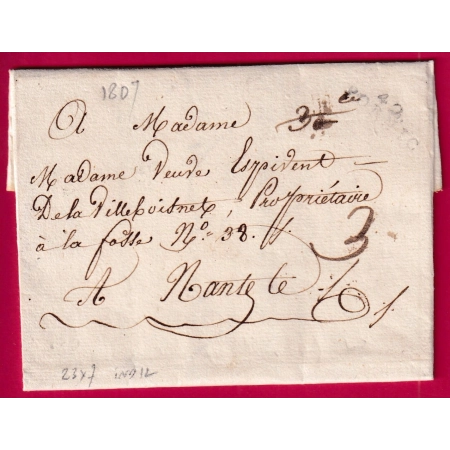 1807
A Madame
Madame veuve Espivent
De la Villeboisnet, Propriétaire
à la fosse No. 38.
3
A Nante
23x7